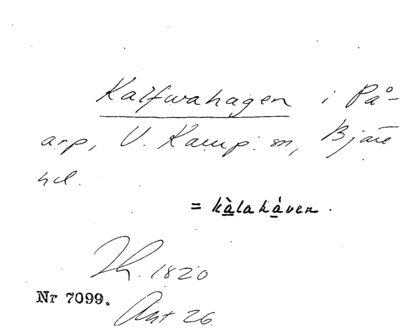 Kalfwahagen i På-
arp, V. Karup sn, Bjäre
hd.
= kàlaháven.
Lh. 1820
Nr 7099.
Akt 26